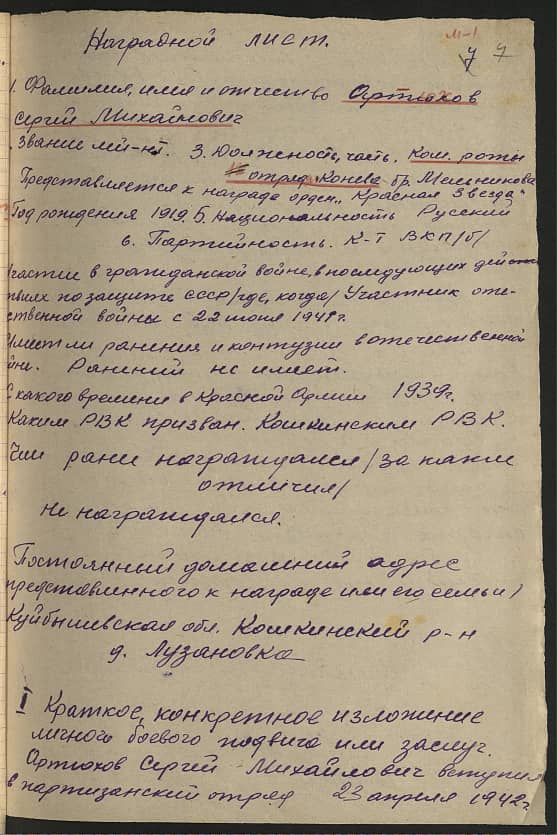 М-1
7 7
Наградной лист.
1. Фамилия, имя и отчество Артюхов
Сергей Михайлович
Звание лей-нт. 3. Должность, часть. Ком. роты
отряд „Конева" бр. Мельникова
Представляется к награде орден „Красная Звезда"
Год рождения 1919. 5. Национальность Русский
6. Партийность. К-т ВКП/б/
Участие в гражданской войне, в последующих дейс
твиях по защите СССР /где, когда/ Участник оте-
ественной войны с 22 июня 1941 г.
Имеет ли ранения и контузии в отечественной
йне. Ранений не имеет.
С какого времени в Красной Армии 1939 г.
Каким РВК призван. Кошкинским РВК.
Чем ранее награждался /за какие
отличия/
Не награждался.
Постоянный домашний адрес
представленного к награде или его семьи/
Куйбышевская обл. Кошкинский р-н
д. Лузановка
I Краткое, конкретное изложение
личного боевого подвига или заслуг.
Артюхов Сергей Михайлович вступил
в партизанский отряд 23 апреля 1942 г.